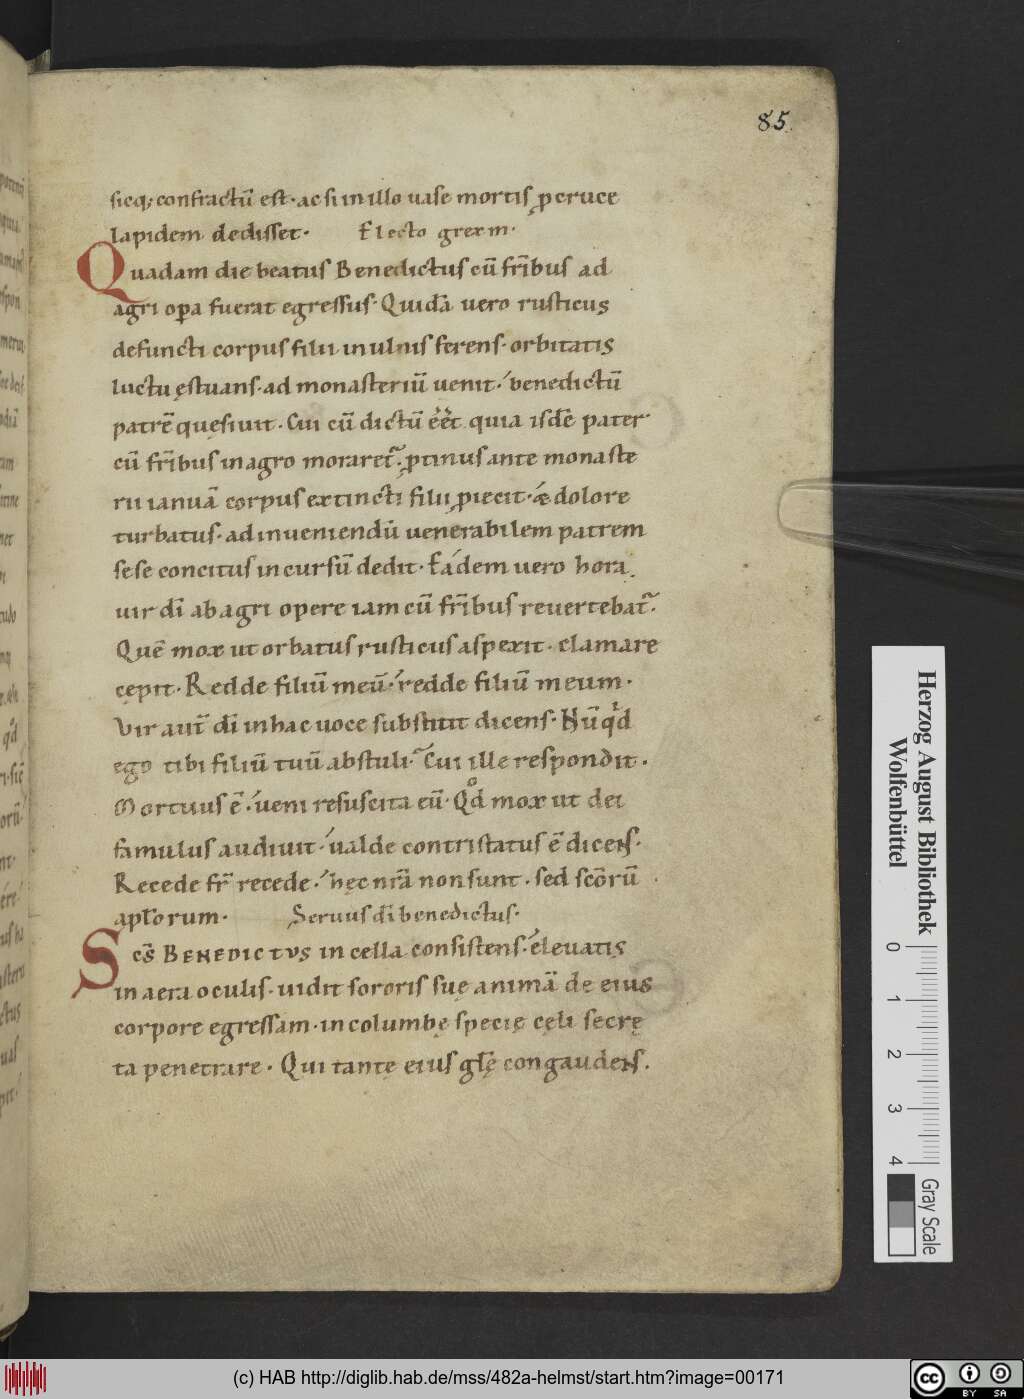 85
sicq; confractū est· ac si in illo uase mortis ꝓ cruce
lapidem dedisset· Electo grex in·
Quadam die beatus Benedictus cū fr̄ibus ad
agri oꝑa fuerat egressus· Quidā uero rusticus
defuncti corpus filii in ulnis ferens· orbitatis
luctu ęstuans· ad monasteriū uenit· benedictū
patrē quęsiuit· Cui cū dictū eēt quia isdē pater
cū fr̄ibus in agro moraret᷑· ꝓtinus ante monaste
rii ianuā corpus extincti filii ꝓiecit· & dolore
turbatus· ad inueniendū uenerabilem patrem
sese concitus in cursū dedit· Eadem uero hora
uir dī ab agri opere iam cū fr̄ibus reuertebat᷑·
Quē mox ut orbatus rusticus aspexit· clamare
cępit· Redde filiū meū· redde filiū meum·
Vir aut̄ dī in hac uoce substitit dicens· Nūqͥd
ego tibi filiū tuū abstuli· Cui ille respondit·
Mortuus ē· ueni resuscita eū· Qͦd mox ut dei
famulus audiuit· ualde contristatus ē dicens·
Recede fr̄ recede· hęc nr̄a non sunt· sed scōrū
apl̄orum· Seruus dī benedictus·
Scs̄ BENEDICTVS in cella consistens· eleuatis
in aera oculis· uidit sororis suę animā de eius
corpore egressam· in columbę specię cęli secrę
ta penetrare· Qui tantę eius gl̄ę congaudens·
Herzog August Bibliothek
Wolfenbüttel
0 1 2 3 4
Gray Scale
(c) HAB http://diglib.hab.de/mss/482a-helmst/start.htm?image=00171
cc BY SA